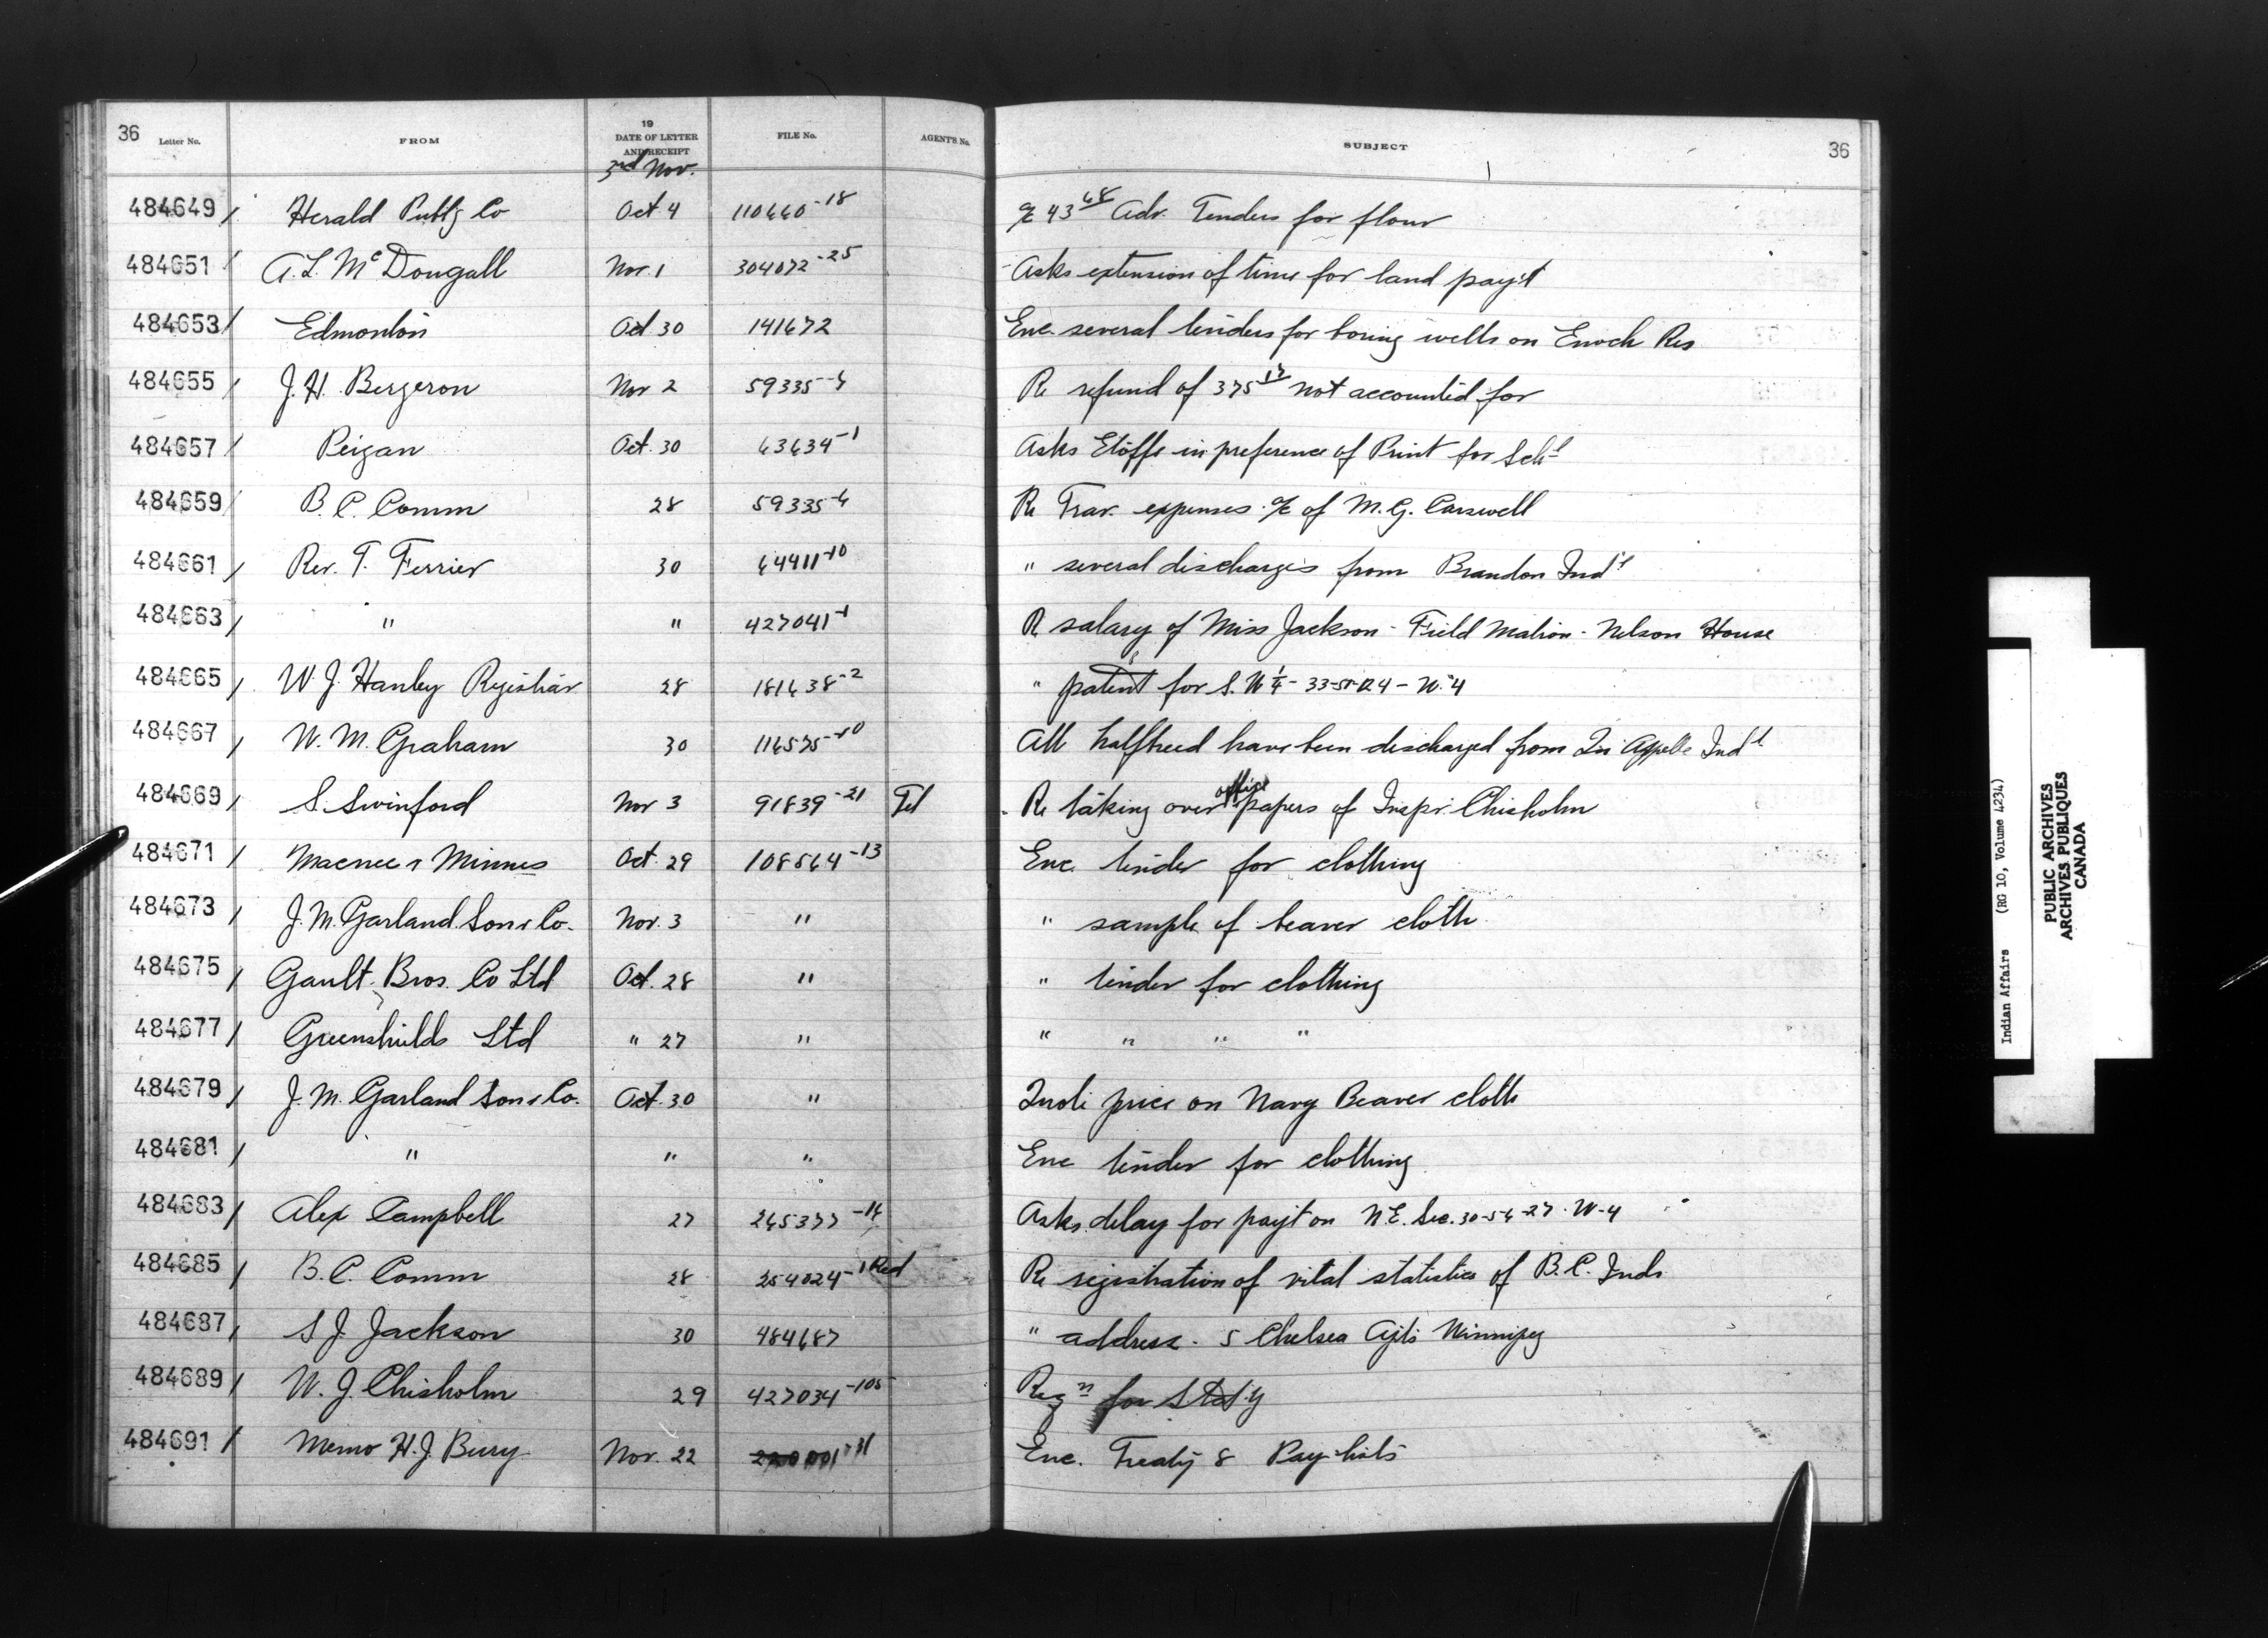 36 Letter No. FROM 19 DATE OF LETTER AND RECEIPT FILE No. AGENT'S No. SUBJECT 36
3rd Nov.
484649 / Herald Publg Co Oct 4 110660-18 a/c 43 68 Adv. Tenders for flour
484651 / A. L. McDougall Nov. 1 304072-25 Asks extension of time for land pay't
484653 / Edmonton Oct 30 141672 Enc. several tenders for boring wells on Enoch Res
484655 / J. H. Bergeron Nov 2 59335-6 Re refund of 375 17 not accounted for
484657 / Peigan Oct. 30 63634-1 Asks Etoffe in preference of Print for Schl
484659 / B. C. Comm 28 59335-6 Re Trav. expenses a/c of M. G. Carswell
484661 / Rev. T. Ferrier 30 64411-10 " several discharges from Brandon Indl
484663 / " " 427041-1 Re salary of Miss Jackson - Field Matron - Nelson House
484665 / W. J. Hanley Registrar 28 181638-2 " patent for S.W ¼ - 33-51-R 4 - W. 4
484667 / W. M. Graham 30 116575-10 All halfbreed have been discharged from Qu'Appelle Indl
484669 / S. Swinford Nov 3 91839-21 Tel Re taking over office papers of Inspr. Chisholm
484671 / Macnee & Minnes Oct. 29 108564-13 Enc. tender for clothing
484673 / J. M. Garland Son & Co. Nov. 3 " " sample of beaver cloth
484675 / Gault Bros. Co Ltd Oct. 28 " " tender for clothing
484677 / Greenshields Ltd " 27 " " " " "
484679 / J. M. Garland Son & Co. Oct. 30 " Quote price on Navy Beaver cloth
484681 / " " " Enc tender for clothing
484683 / Alex Campbell 27 265377-14 Asks delay for pay't on N.E. Sec. 30-54-27-W-4
484685 / B. C. Comm 28 254024-1 Red Re registration of vital statistics of B.C. Inds
484687 / S J. Jackson 30 484687 " address - 5 Chelsea Apts Winnipeg
484689 / W. J. Chisholm 29 427034-105 Reqn for Stat'y
484691 / Memo H. J. Bury Nov. 22 Enc. Treaty 8 Pay-lists
Indian Affairs (RG 10, Volume 4234)
PUBLIC ARCHIVES
ARCHIVES PUBLIQUES
CANADA